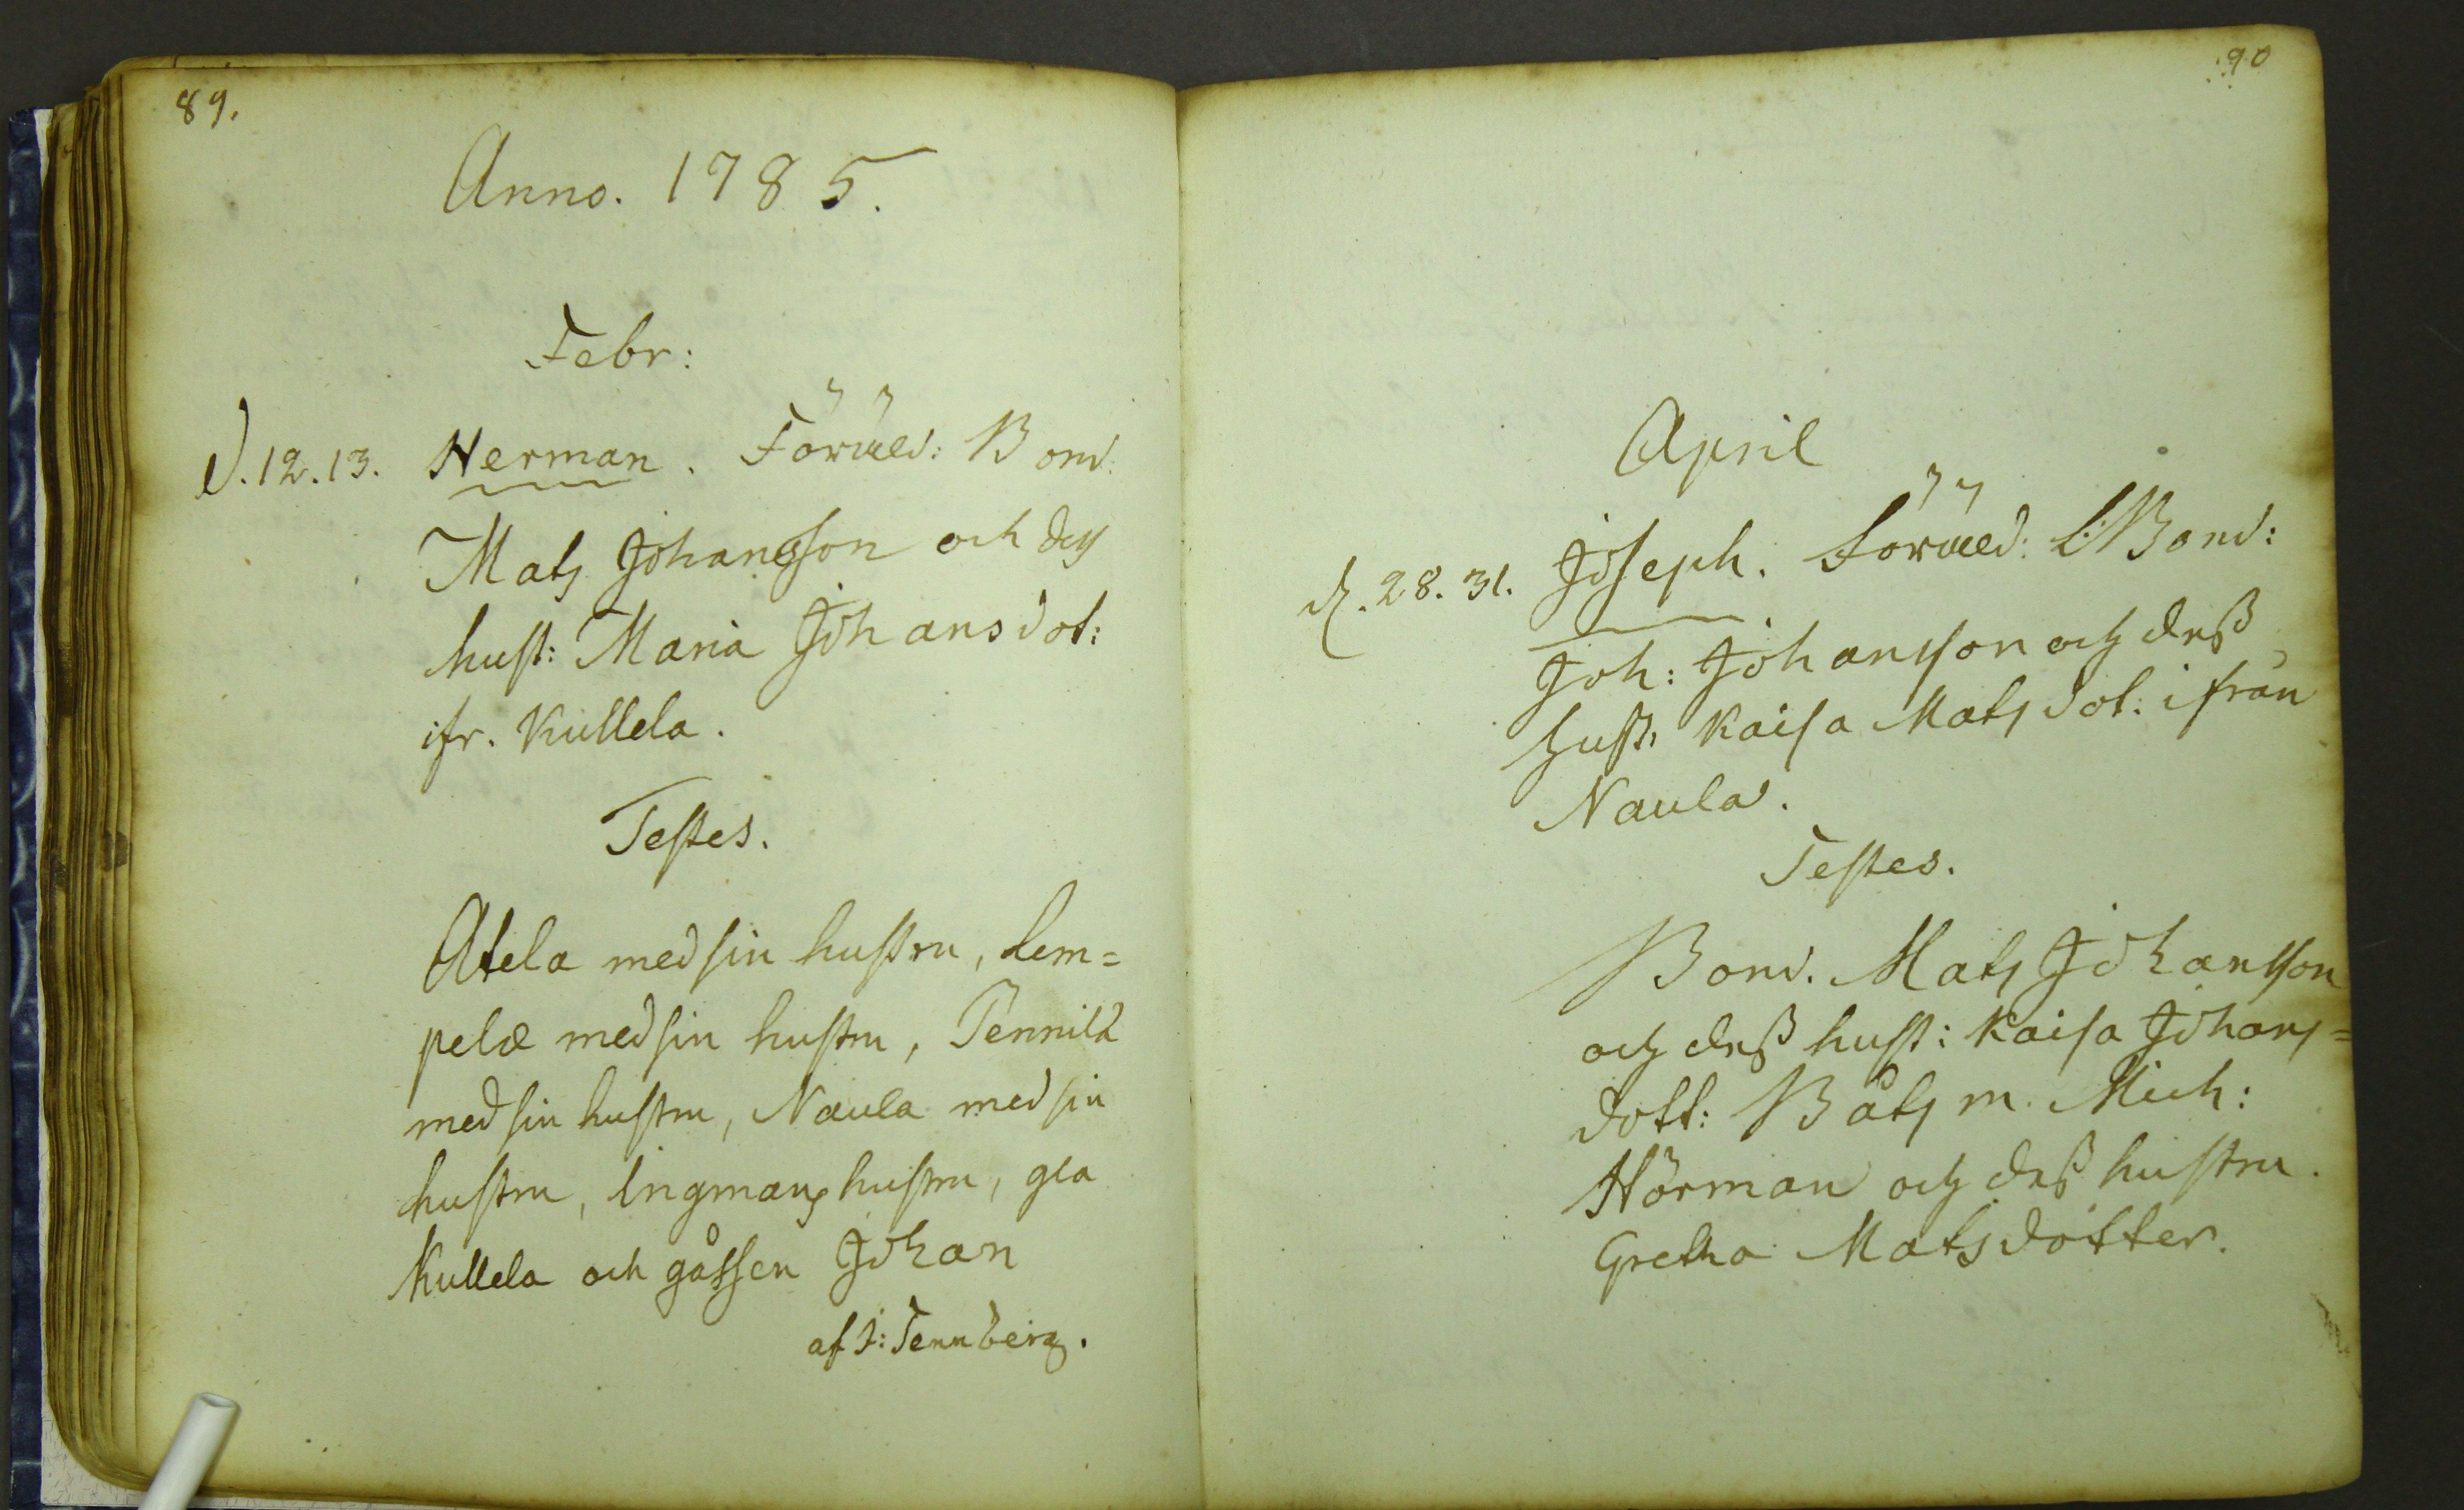 89.
Anno. 1785.
Febr:
d. 12. 13. Herman. Föräld: Bond.
Mats Johansson och dess
hust: Maria Johansdot:
ifr. Kullela.
Testes.
Atela med sin hustru, Lem=
pelä med sin hustru, Pennilä
med sin hustru, Naula med sin
hustru, Ingmans hustru, gla
Kullela och gåssen Johan
af J: Tennberg.
90
April
d. 28. 31. Joseph. Föräld: Bond:
Joh: Johansson och dess
hust: Kaisa Mats dot: ifrån
Naula.
Testes.
Bond. Mats Johansson
och dess hust: Kaisa Johans=
dott: Båtsm. Mich:
Hörman och dess hustru.
Gretha Matsdotter.